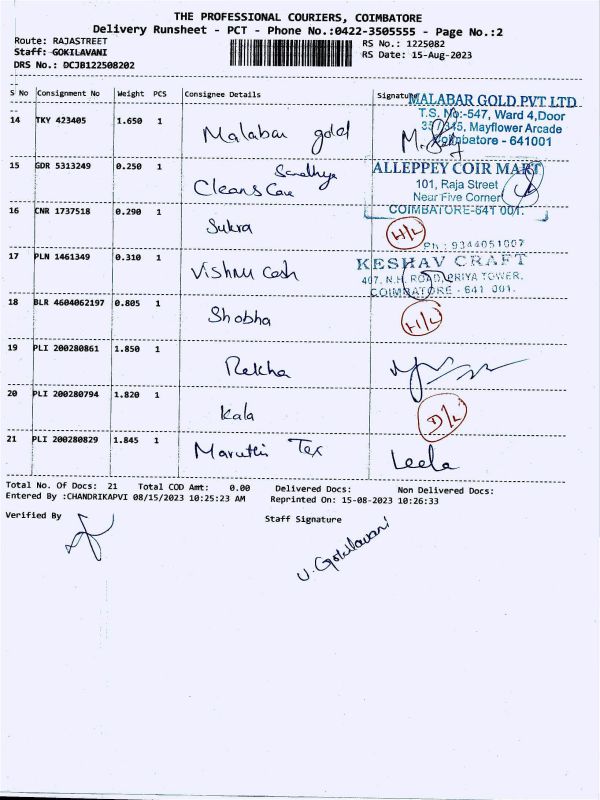 THE PROFESSIONAL COURIERS, COIMBATORE
Delivery Runsheet - PCT - Phone No.:0422-3505555 - Page No.:2
Route: RAJASTREET
Staff: GOKILAVANI
DRS No.: DCJB122508202
RS No.: 1225082
RS Date: 15-Aug-2023
S No Consignment No Weight PCS Consignee Details Signature
MALABAR GOLD PVT LTD
T.S. No:-547, Ward 4,Door
Mayflower Arcade
Coimbatore - 641001
14 TKY 423405 1.650 1 Malabar gold
ALLEPPEY COIR MART
101, Raja Street
Near Five Corner
COIMBATORE-641 001.
15 GDR 5313249 0.250 1 Sandhya
Cleans Care
16 CNR 1737518 0.290 1 Sukra H/L
Ph : 9344051007
KESHAV CRAFT
407, N.H. ROAD, PRIYA TOWER,
COIMBATORE - 641 001.
17 PLN 1461349 0.310 1 Vishnu Cash
18 BLR 4604062197 0.805 1 Shobha H/L
19 PLI 200280861 1.850 1 Rekha
20 PLI 200280794 1.820 1 Kala D/L
21 PLI 200280829 1.845 1 Maruthi Tex Leela
Total No. Of Docs: 21 Total COD Amt: 0.00 Delivered Docs: Non Delivered Docs:
Entered By :CHANDRIKAPVI 08/15/2023 10:25:23 AM Reprinted On: 15-08-2023 10:26:33
Verified By Staff Signature
V. Gokilavani